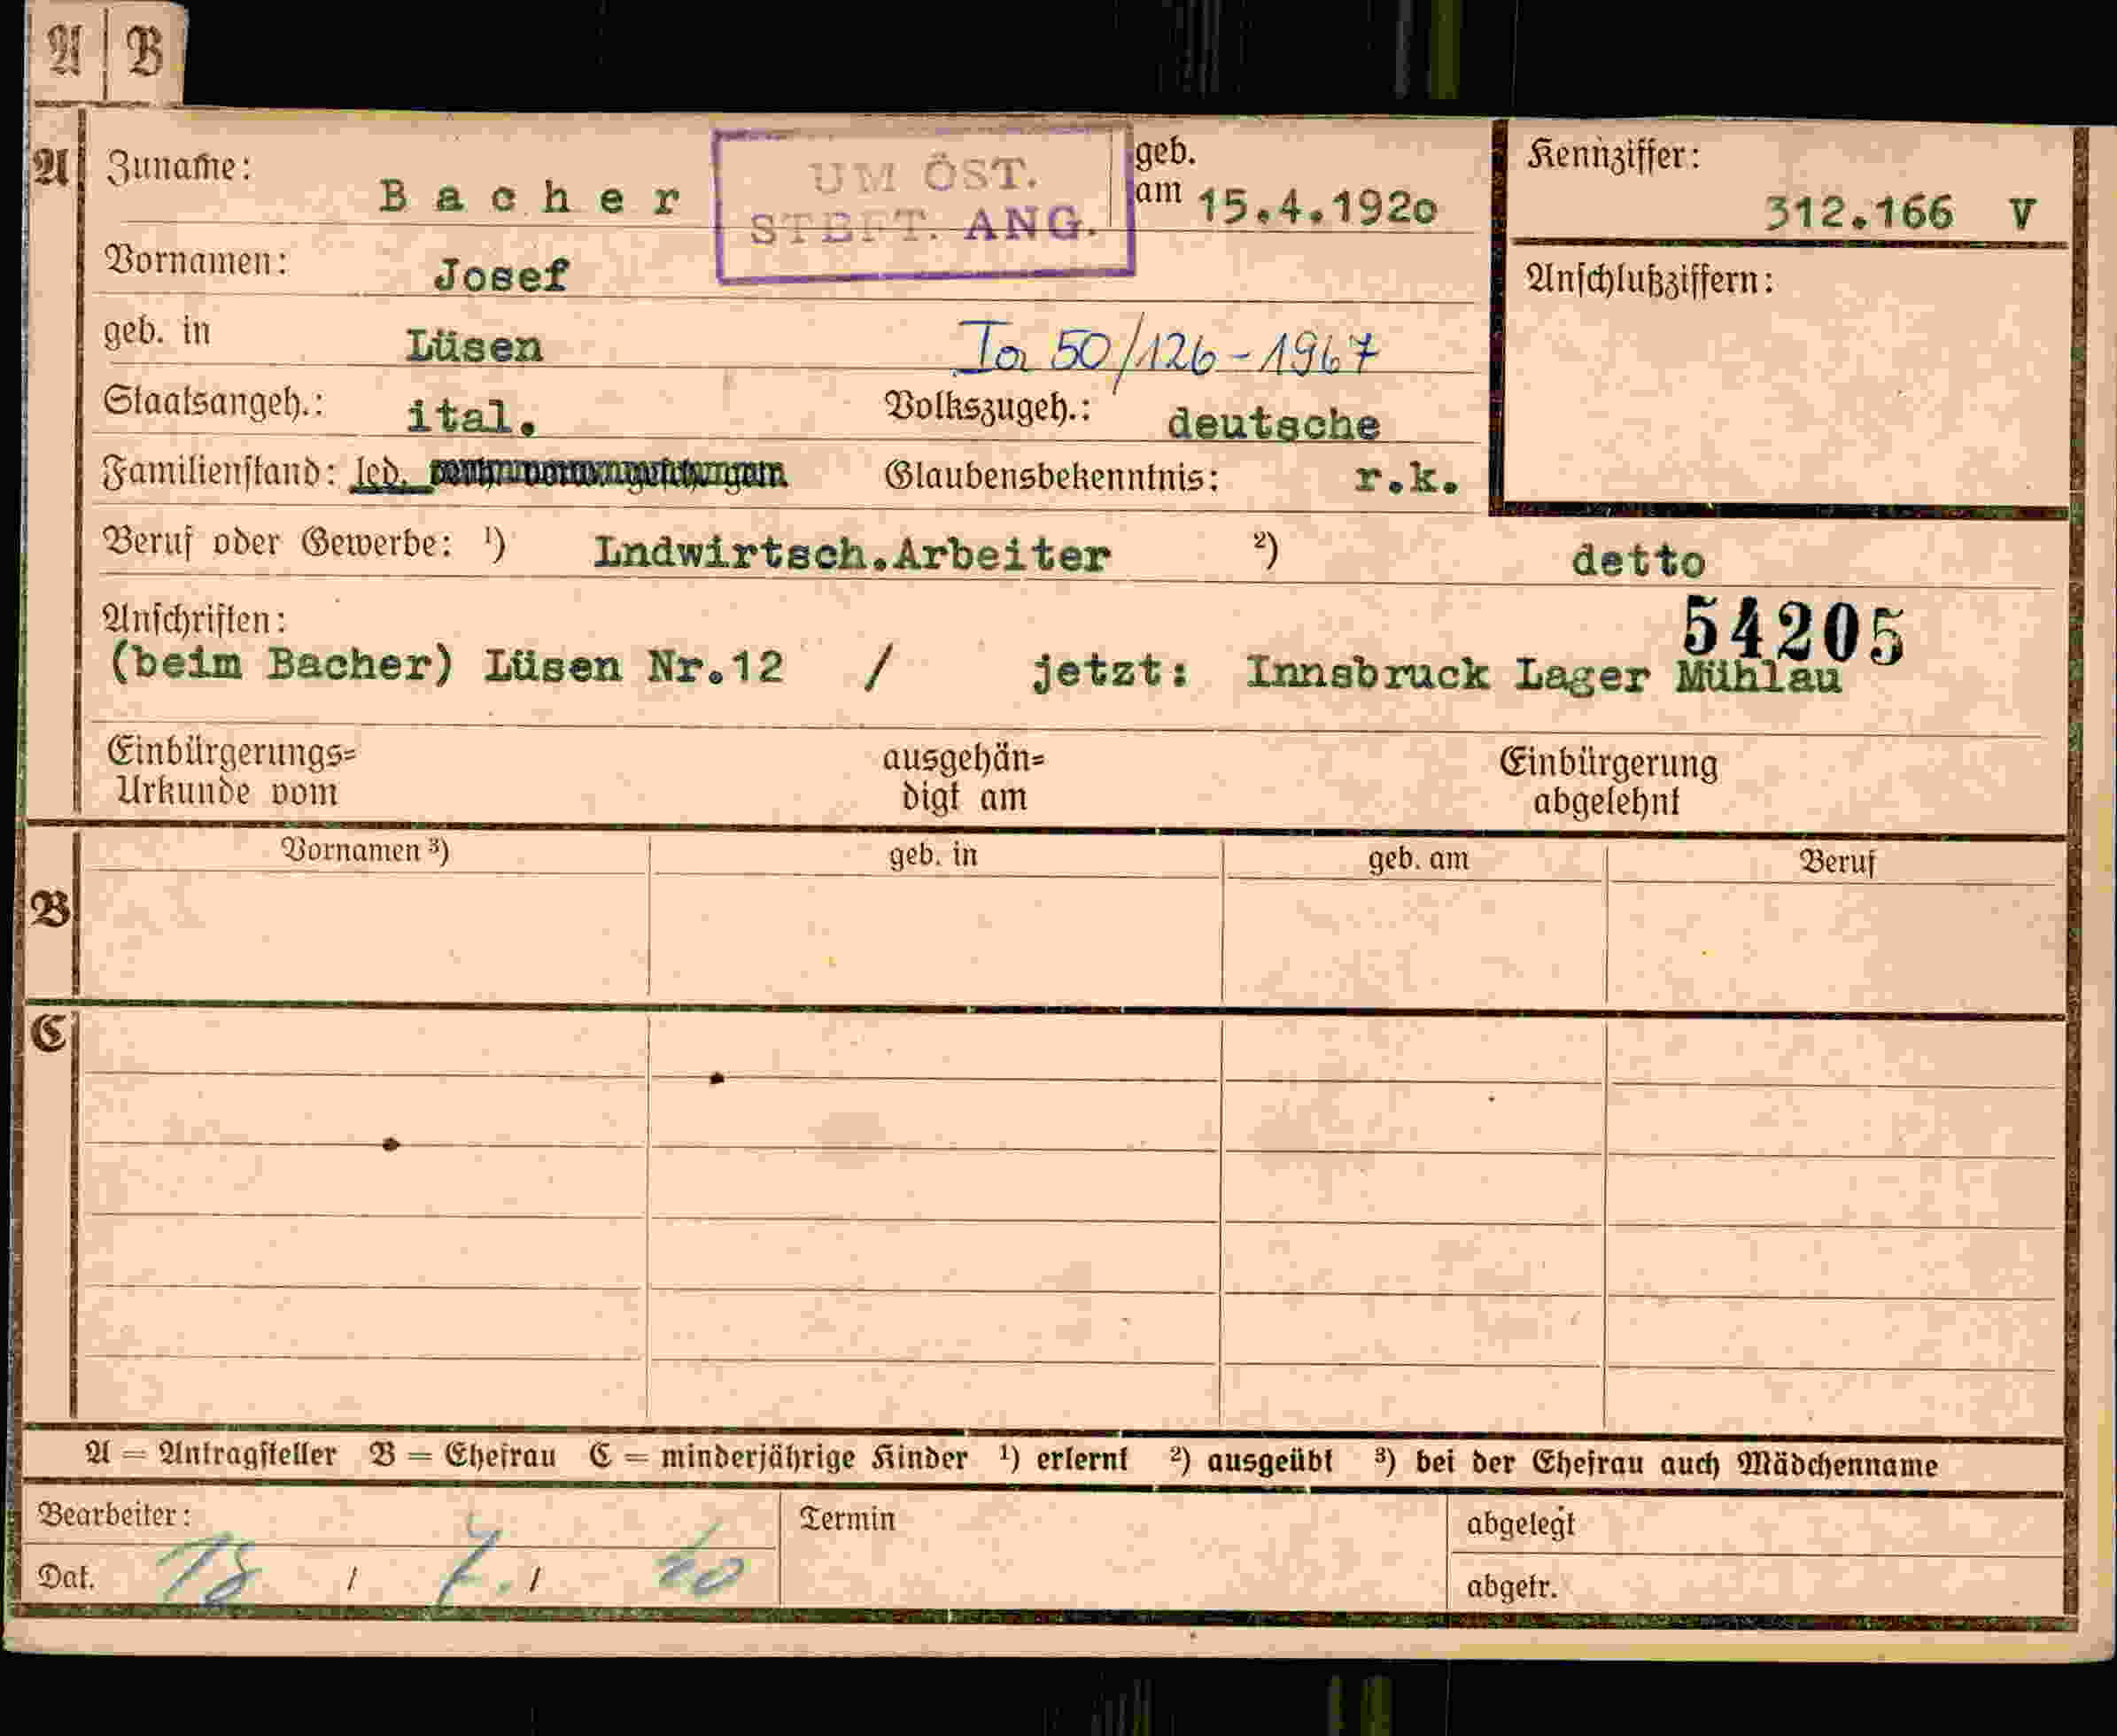 A | B
A Zuname: B a c h e r
UM ÖST.
STBFT. ANG.
geb. am 15.4.1920
Kennziffer: 312.166 V
Vornamen: Josef
Anschlußziffern:
geb. in Lüsen Ia 50/126-1967
Staatsangeh.: ital. Volkszugeh.: deutsche
Familienstand: led. Glaubensbekenntnis: r.k.
Beruf oder Gewerbe: ¹) Lndwirtsch.Arbeiter ²) detto
Anschriften: 54205
(beim Bacher) Lüsen Nr.12 / jetzt: Innsbruck Lager Mühlau
Einbürgerungs= ausgehän= Einbürgerung
Urkunde vom digt am abgelehnt
Vornamen ³) geb. in geb. am Beruf
B
C
A = Antragsteller B = Ehefrau C = minderjährige Kinder ¹) erlernt ²) ausgeübt ³) bei der Ehefrau auch Mädchenname
Bearbeiter: Termin abgelegt
Dat. 18 / 7. / 40 abgetr.